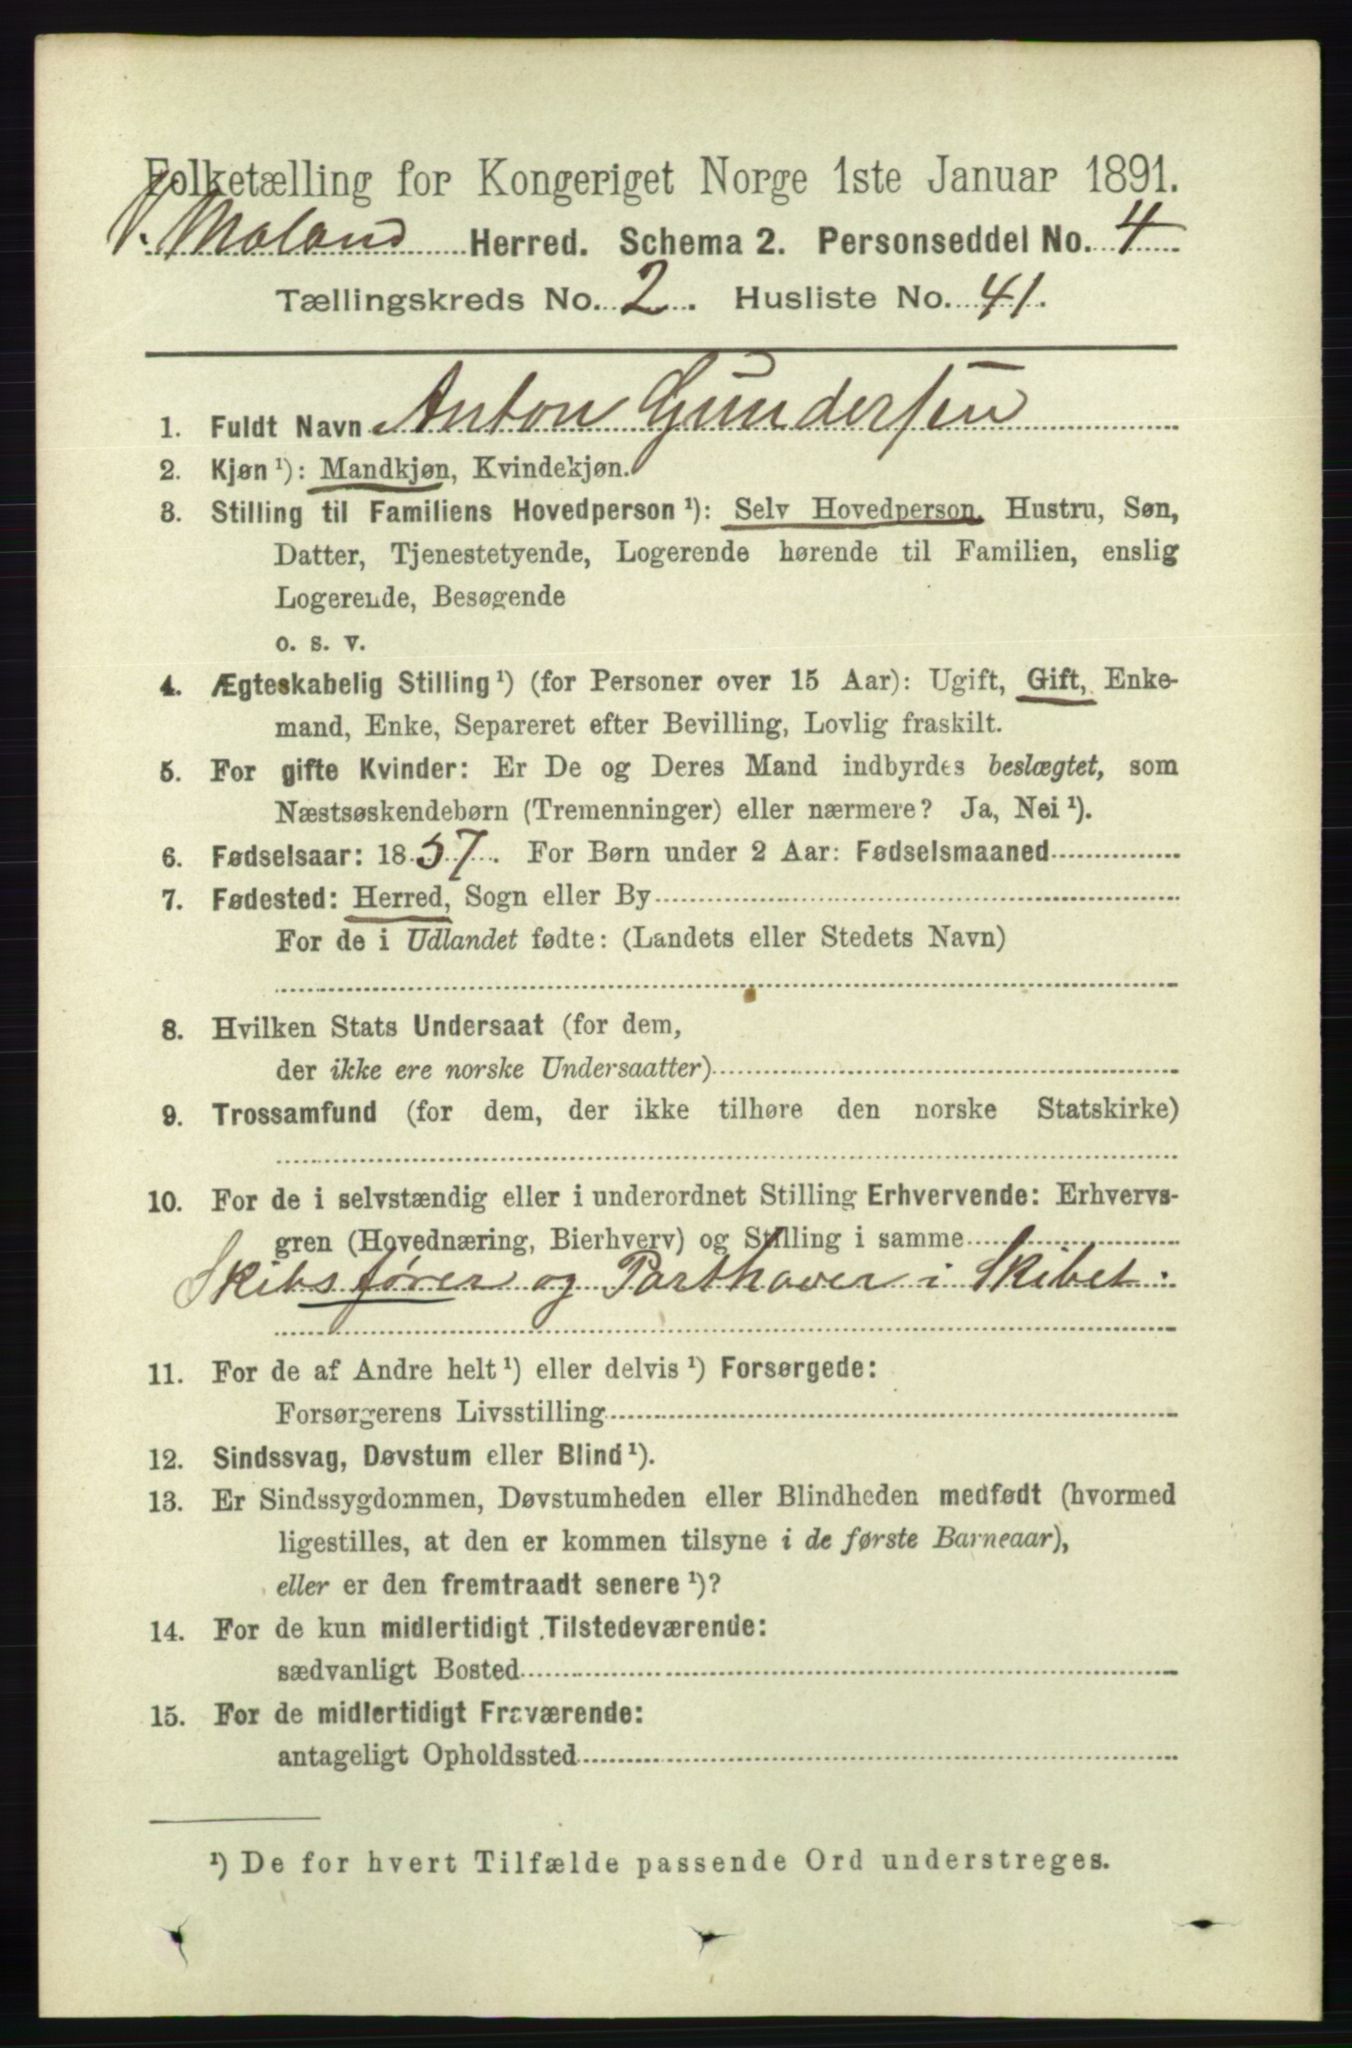 Folketælling for Kongeriget Norge 1ste Januar 1891.
V. Moland Herred. Schema 2. Personseddel No. 4
Tællingskreds No. 2. Husliste No. 41.
1. Fuldt Navn Anton Gundersen
2. Kjøn ¹): Mandkjøn, Kvindekjøn.
3. Stilling til Familiens Hovedperson ¹): Selv Hovedperson, Hustru, Søn,
Datter, Tjenestetyende, Logerende hørende til Familien, enslig
Logerende, Besøgende
o. s. v.
4. Ægteskabelig Stilling ¹) (for Personer over 15 Aar): Ugift, Gift, Enke-
mand, Enke, Separeret efter Bevilling, Lovlig fraskilt.
5. For gifte Kvinder: Er De og Deres Mand indbyrdes beslægtet, som
Næstsøskendebørn (Tremenninger) eller nærmere? Ja, Nei ¹).
6. Fødselsaar: 1857. For Børn under 2 Aar: Fødselsmaaned
7. Fødested: Herred, Sogn eller By
For de i Udlandet fødte: (Landets eller Stedets Navn)
8. Hvilken Stats Undersaat (for dem,
der ikke ere norske Undersaatter)
9. Trossamfund (for dem, der ikke tilhøre den norske Statskirke)
10. For de i selvstændig eller i underordnet Stilling Erhvervende: Erhvervs-
gren (Hovednæring, Bierhverv) og Stilling i samme
Skibsfører og Parthaver i Skibet.
11. For de af Andre helt ¹) eller delvis ¹) Forsørgede:
Forsørgerens Livsstilling
12. Sindssvag, Døvstum eller Blind ¹).
13. Er Sindssygdommen, Døvstumheden eller Blindheden medfødt (hvormed
ligestilles, at den er kommen tilsyne i de første Barneaar),
eller er den fremtraadt senere ¹)?
14. For de kun midlertidigt Tilstedeværende:
sædvanligt Bosted
15. For de midlertidigt Fraværende:
antageligt Opholdssted
¹) De for hvert Tilfælde passende Ord understreges.